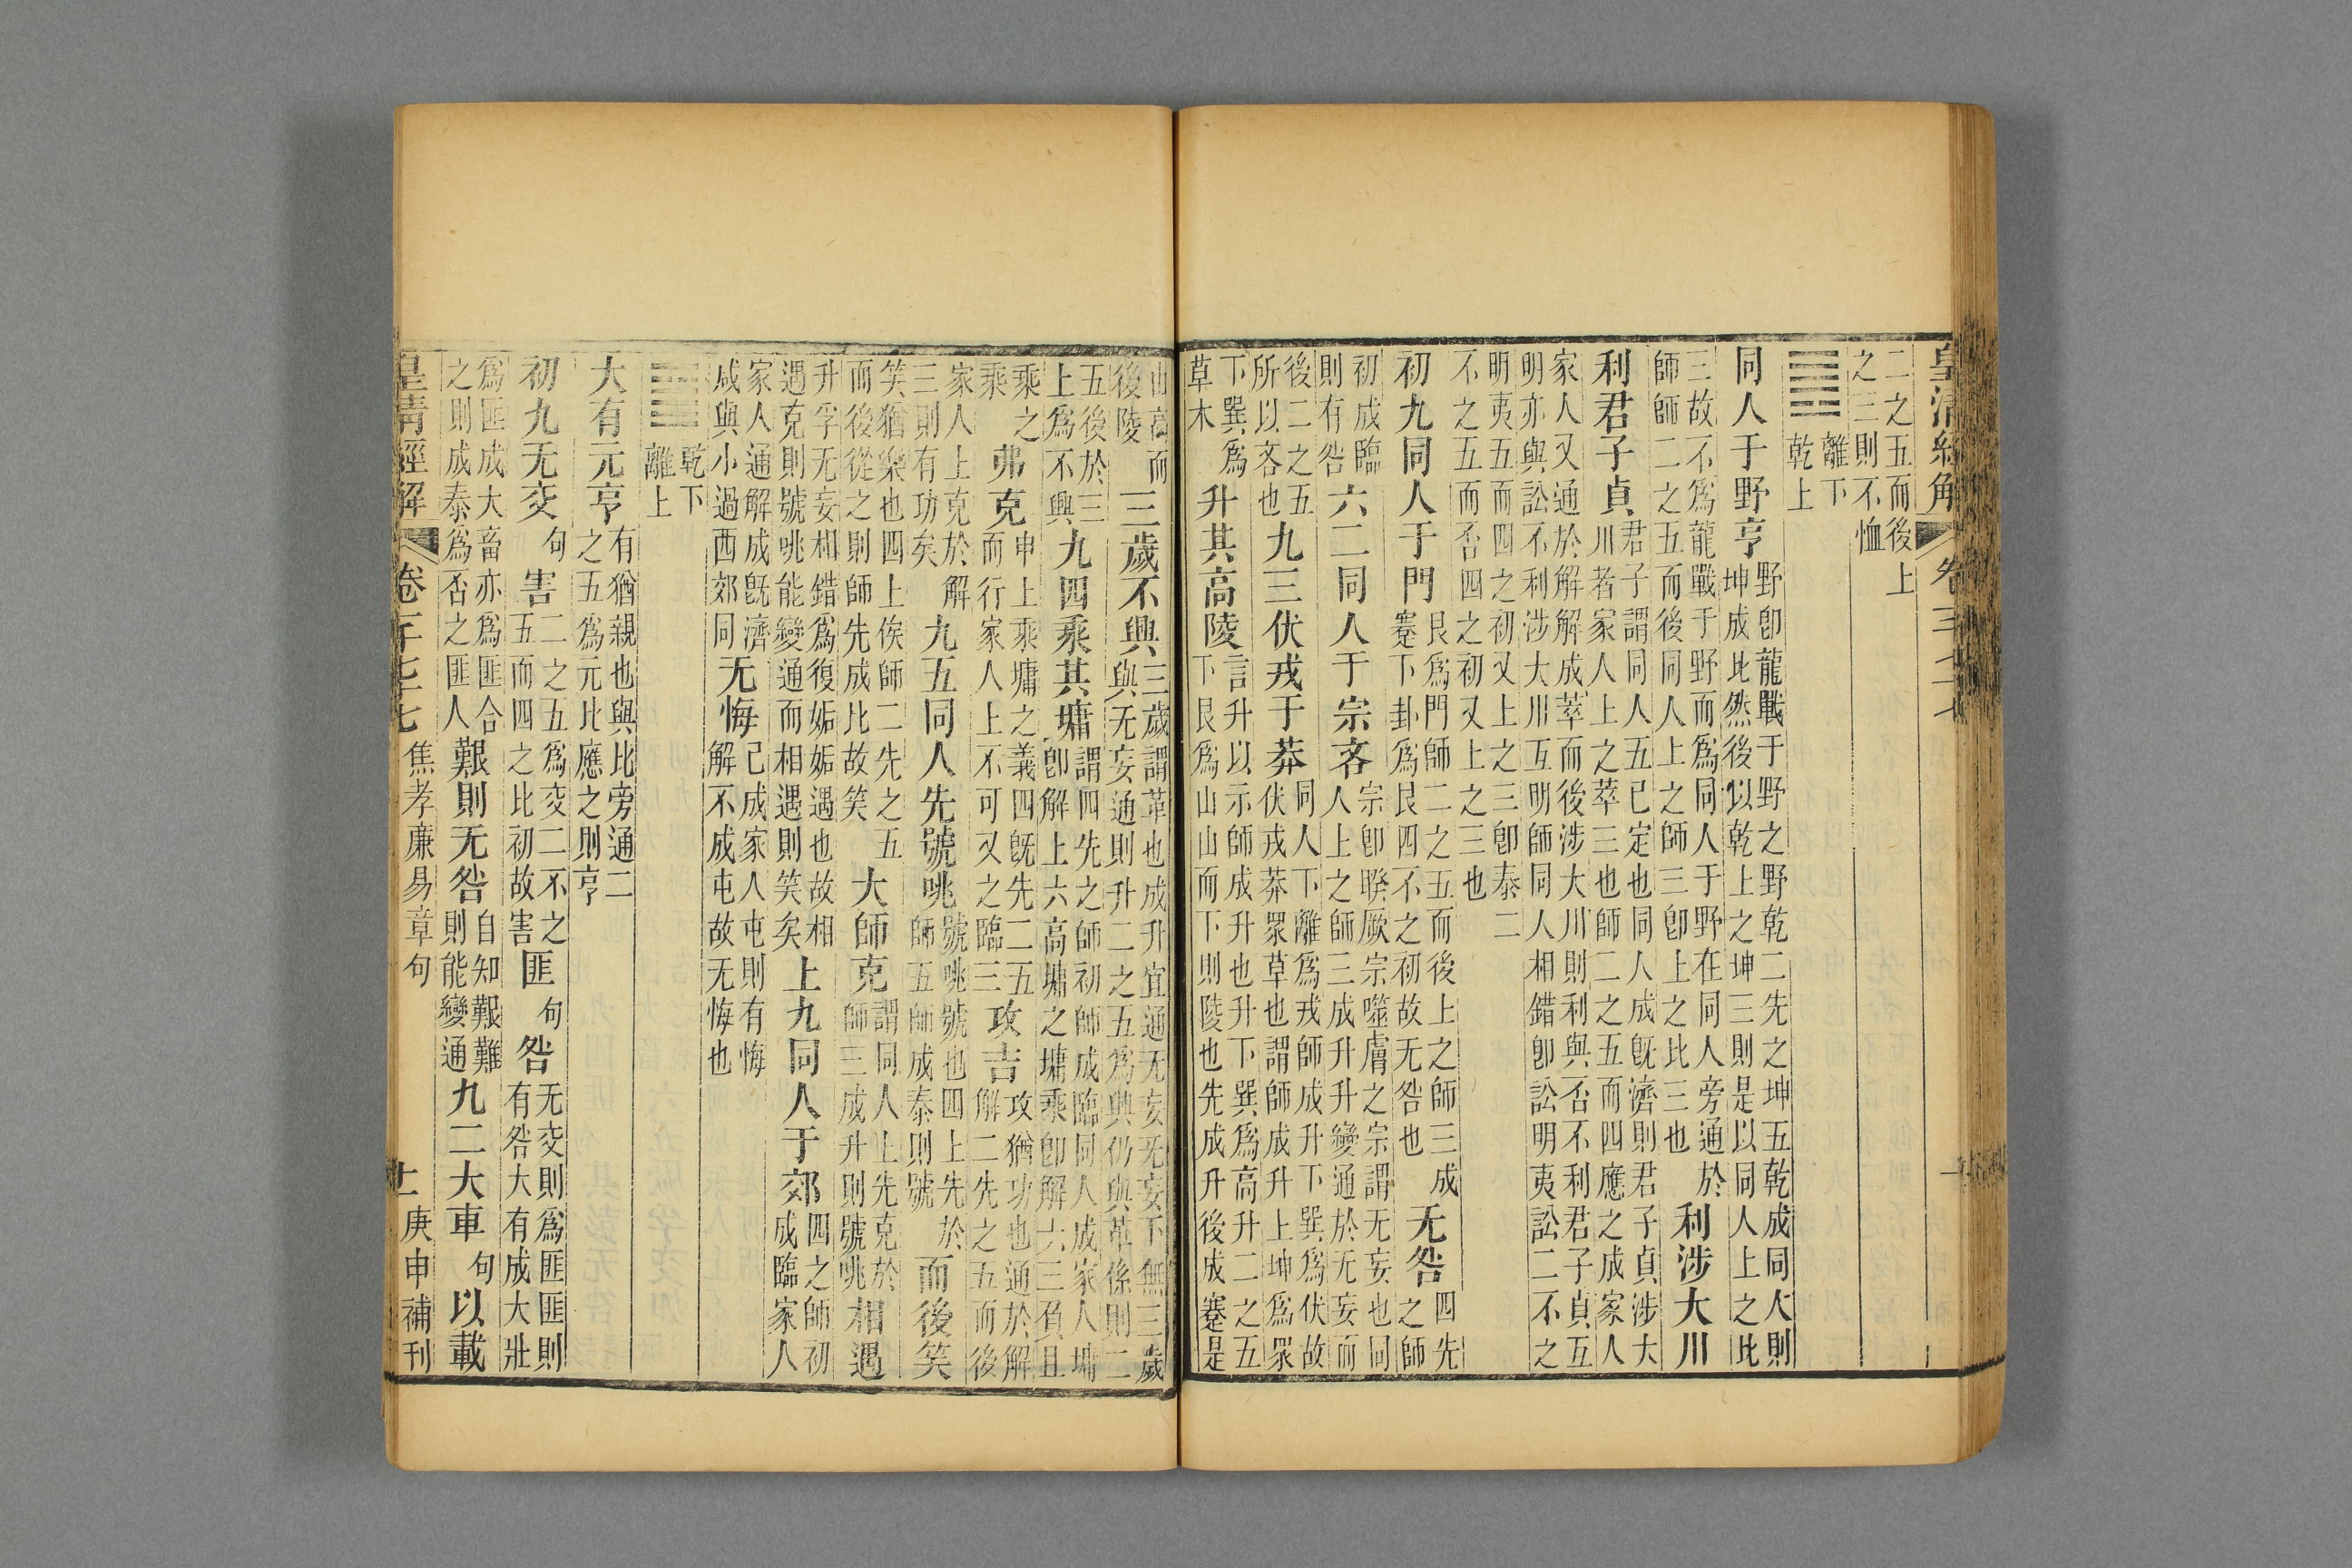 二之五而後上之三則不恤
䷌離下乾上
同人于野亨野卽龍戰于野之野乾二先之坤五乾成同人則坤成比然後以乾上之坤三則是以同人上之比
三故不爲龍戰于野而爲同人于野在同人旁通於師師二之五而後同人上之師三卽上之比三也利涉大川
利君子貞君子謂同人五已定也同人成旣濟則君子貞涉大川者家人上之萃三也師二之五而四應之成家人
家人又通於解解成萃而後涉大川則利與否不利君子貞互明亦與訟不利涉大川互明師同人相錯卽訟明夷訟二不之
明夷五而四之初又上之三卽泰二不之五而否四之初又上之三也
初九同人于門艮爲門師二之五而後上之師三成蹇下卦爲艮四不之初故无咎也无咎四先之師
初成臨則有咎六二同人于宗吝宗卽睽厥宗噬膚之宗謂无妄也同人上之師三成升升變通於无妄而
後二之五所以吝也九三伏戎于莽同人下離爲戎師成升下巽爲伏故伏戎莽眾草也謂師成升上坤爲眾
下巽爲草木升其高陵言升以示師成升也升下巽爲高升二之五下艮爲山山而下則陵也先成升後成蹇是
由高而後陵三歲不興三歲謂革也成升宜通无妄无妄下無三歲與无妄通則升二之五爲興仍與革係則二
五後於三上爲不興九四乘其墉謂四先之師初師成臨同人成家人墉卽解上六高墉之墉乘卽解六三負且
乘之乘弗克申上乘墉之義四旣先二五而行家人上不可又之臨三攻吉攻猶功也通於解解二先之五而後
家人上克於解三則有功矣九五同人先號咷號咷號也四上先於師五師成泰則號而後笑
笑猶樂也四上俟師二先之五而後從之則師先成比故笑大師克謂同人上先克於師三成升則號咷相遇
升孚无妄相錯爲復姤姤遇也故相遇克則號咷能變通而相遇則笑矣上九同人于郊四之師初成臨家人
家人通解成旣濟咸與小過西郊同无悔已成家人屯則有悔解不成屯故无悔也
䷍乾下離上
大有元亨有猶親也與比旁通二之五爲元比應之則亨
初九无交句害二之五爲交二不之五而四之比初故害匪句咎无交則爲匪匪則有咎大有成大壯
爲匪成大畜亦爲匪合之則成泰爲否之匪人艱則无咎自知艱難則能變通九二大車句以載
皇清經解 卷一千七十七 焦孝廉易章句 十一 庚申補刊